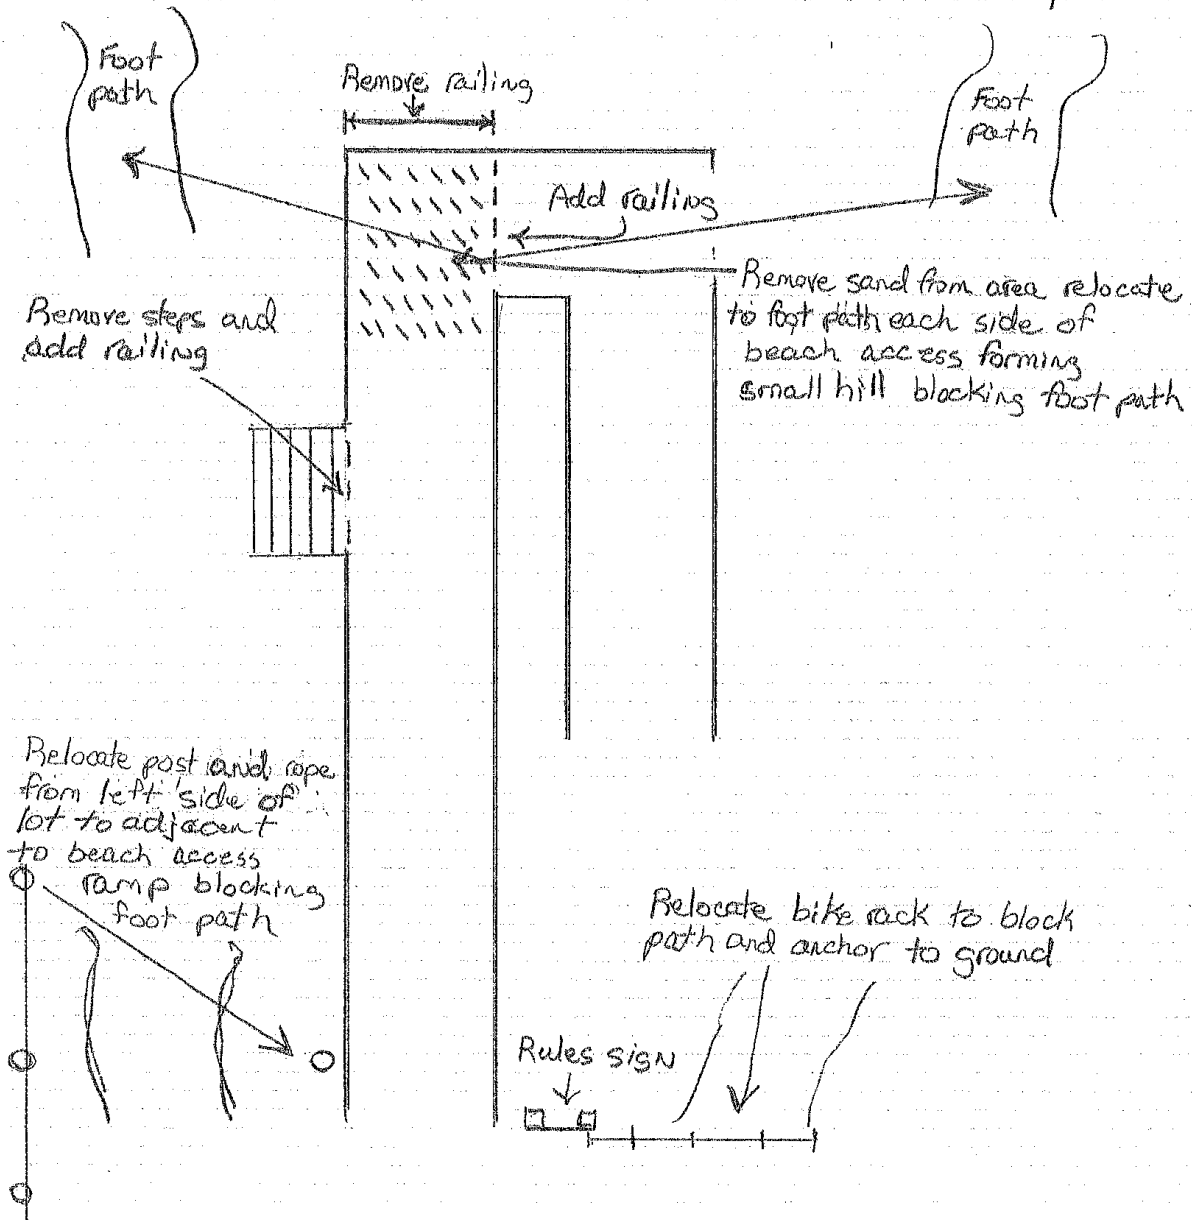 Foot
path
Remove railing
Foot
path
Add railing
Remove steps and
add railing
Remove sand from area relocate
to foot path each side of
beach access forming
small hill blocking foot path
Relocate post and rope
from left side of
lot to adjacent
to beach access
ramp blocking
foot path
Relocate bike rack to block
path and anchor to ground
Rules sign